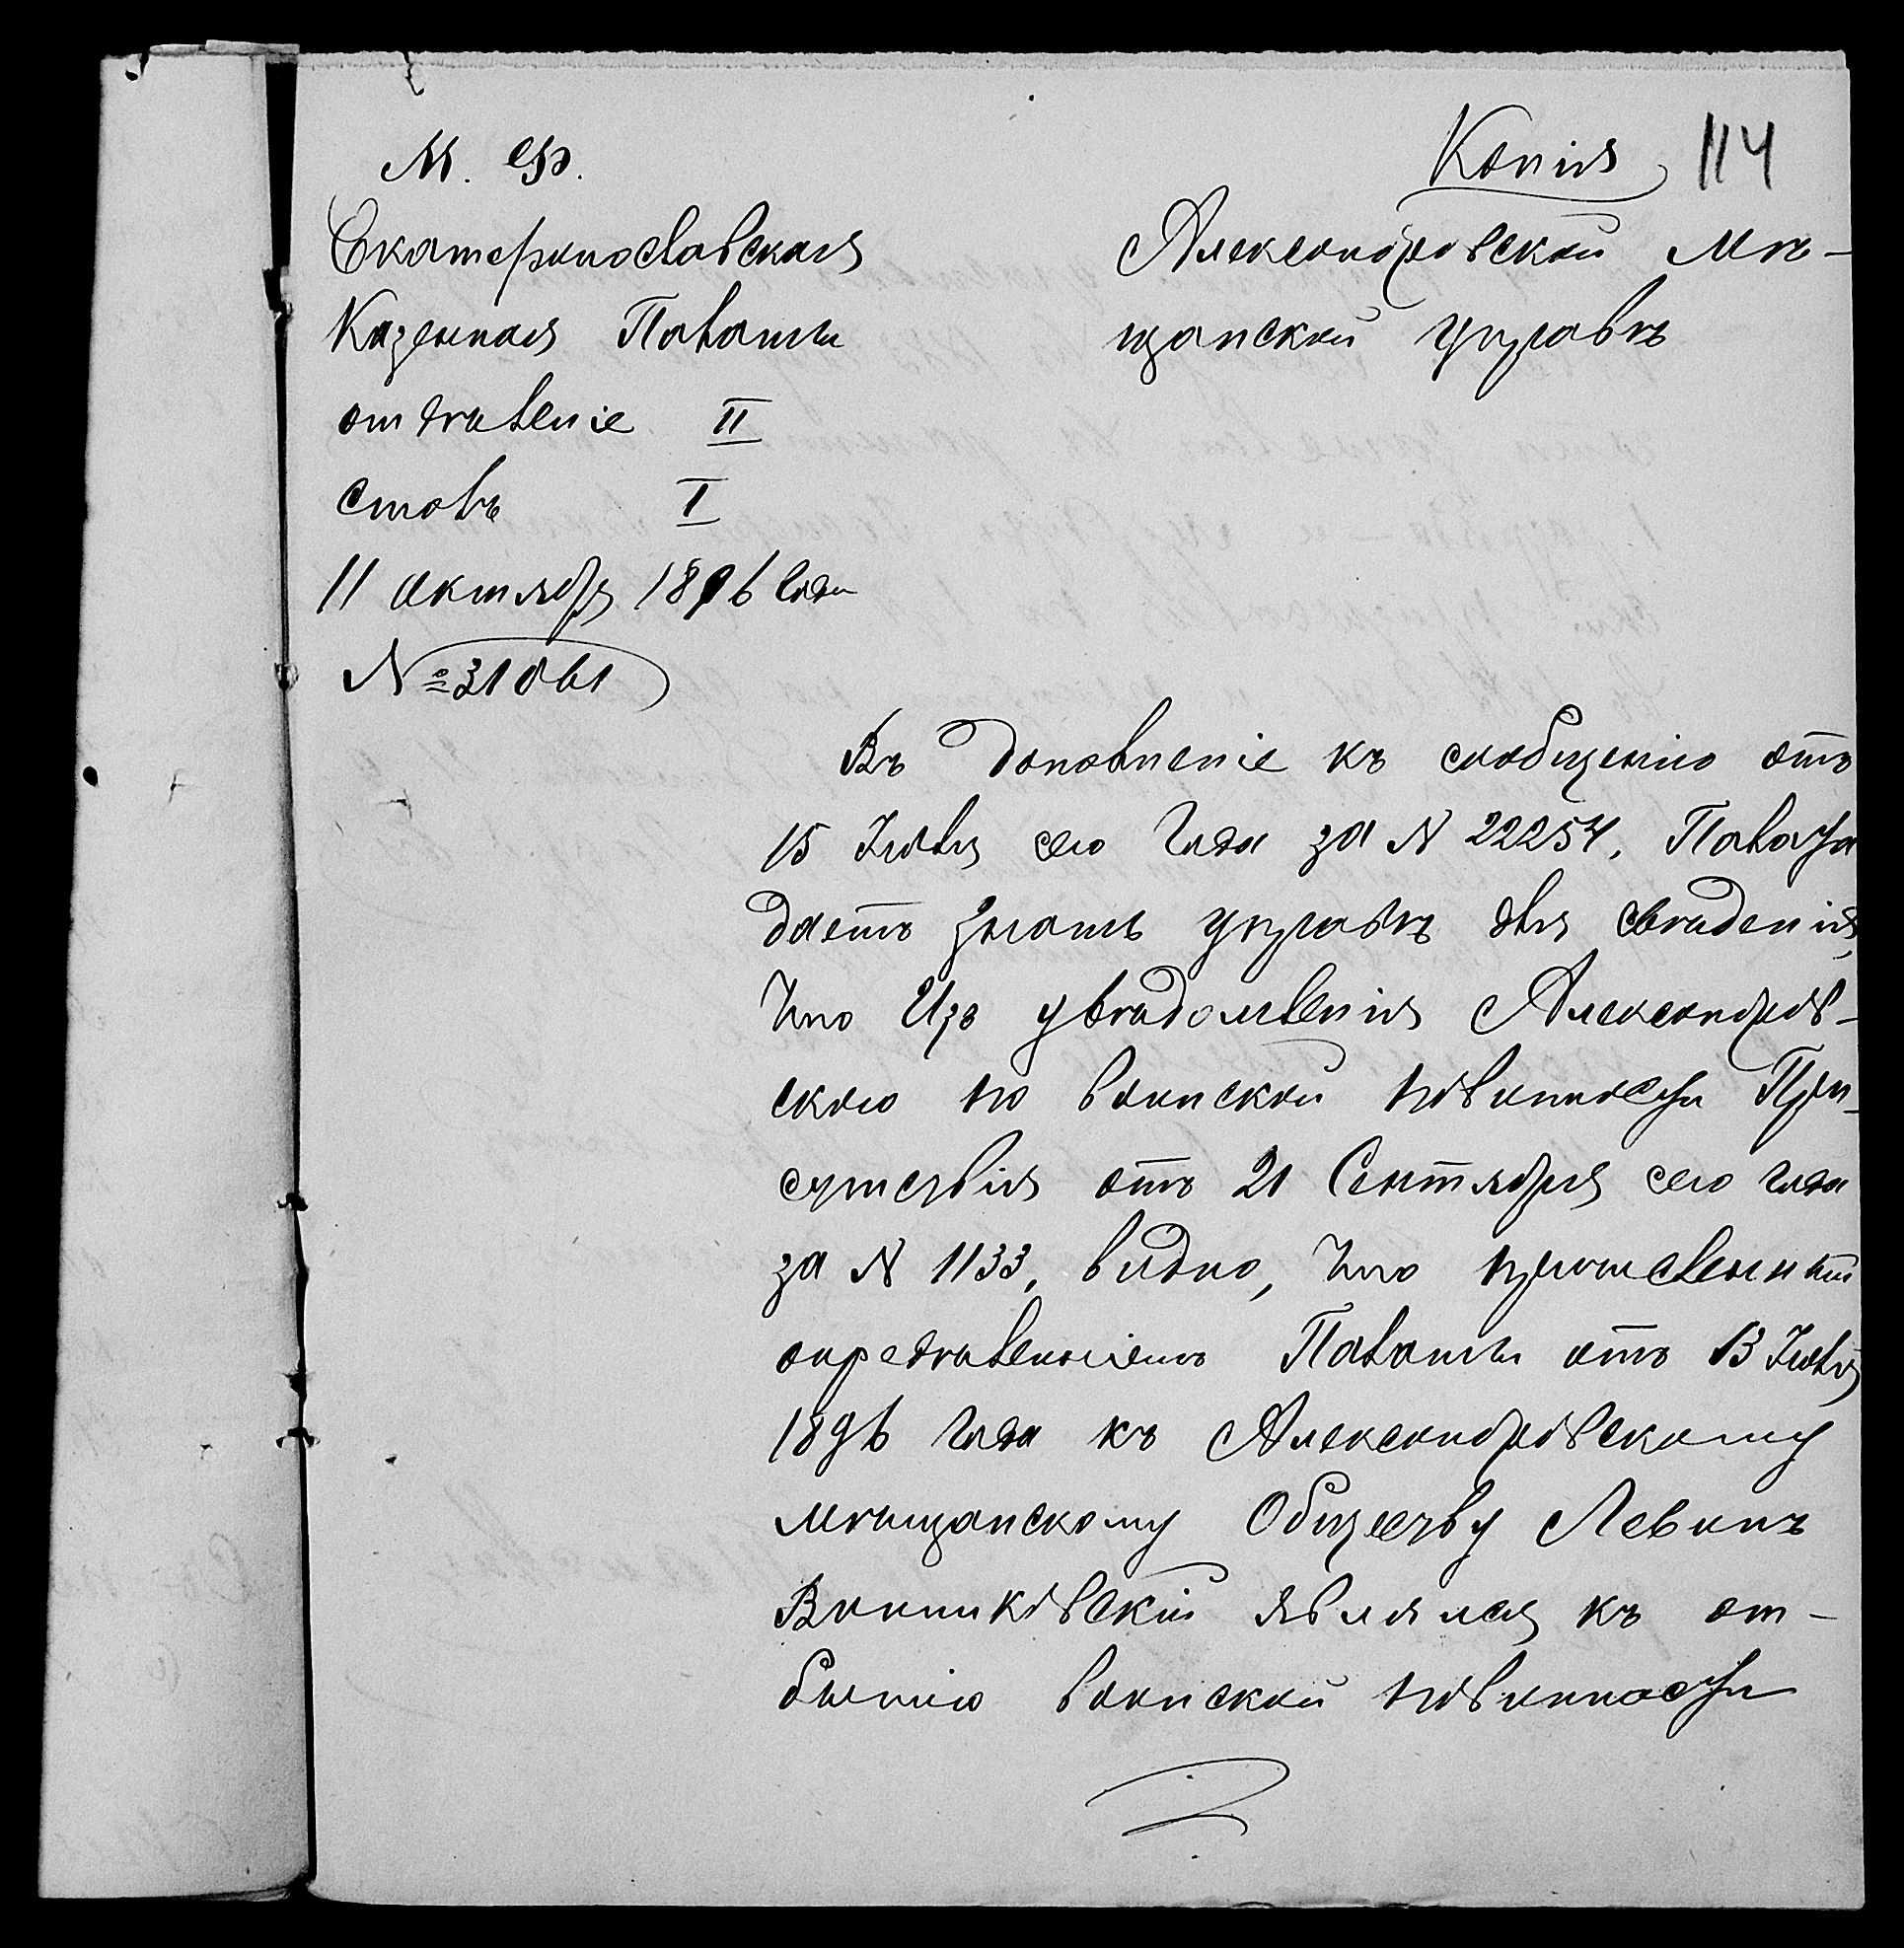 М. Ф.
Копія 114
Екатеринославская
Казенная Палата
отдѣленіе II
столъ I
11 октября 1896 года
№ 31061
Александровской Мѣ-
щанской управѣ
Въ дополненіе къ сообщенію отъ
15 Іюля сего года за N 22254, Палата
даетъ знать управѣ для свѣденія,
что изъ увѣдомленія Александров-
скаго по воинской повинности При-
сутствія отъ 21 Сентября сего года
за N 1133, видно, что причисленный
опредѣленіемъ Палаты отъ 13 Іюля
1896 года къ Александровскому
мѣщанскому Обществу Левинъ
являлся къ от-
бытію воинской повинности